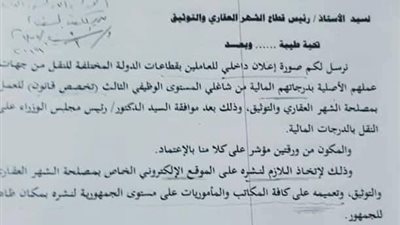 لسيد الأستاذ / رئيس قطاع الشهر العقاري والتوثيق
تحية طيبة ...... وبعـد
نرسل لكم صورة إعلان داخلي للعاملين بقطاعات الدولة المختلفة للنقل من جهات
عملهم الأصلية بدرجاتهم المالية من شاغلي المستوى الوظيفي الثالث (تخصص قانون) للعمل
بمصلحة الشهر العقاري والتوثيق، وذلك بعد موافقة السيد الدكتور/ رئيس مجلس الوزراء على
النقل بالدرجات المالية.
والمكون من ورقتين مؤشر على كلا منا بالإعتماد.
وذلك لإتخاذ اللازم لنشره على الموقع الإلكتروني الخاص بمصلحة الشهر العقاري
والتوثيق، وتعميمه على كافة المكاتب والمأموريات على مستوى الجمهورية لنشره بمكان ظاهر
للجمهور.